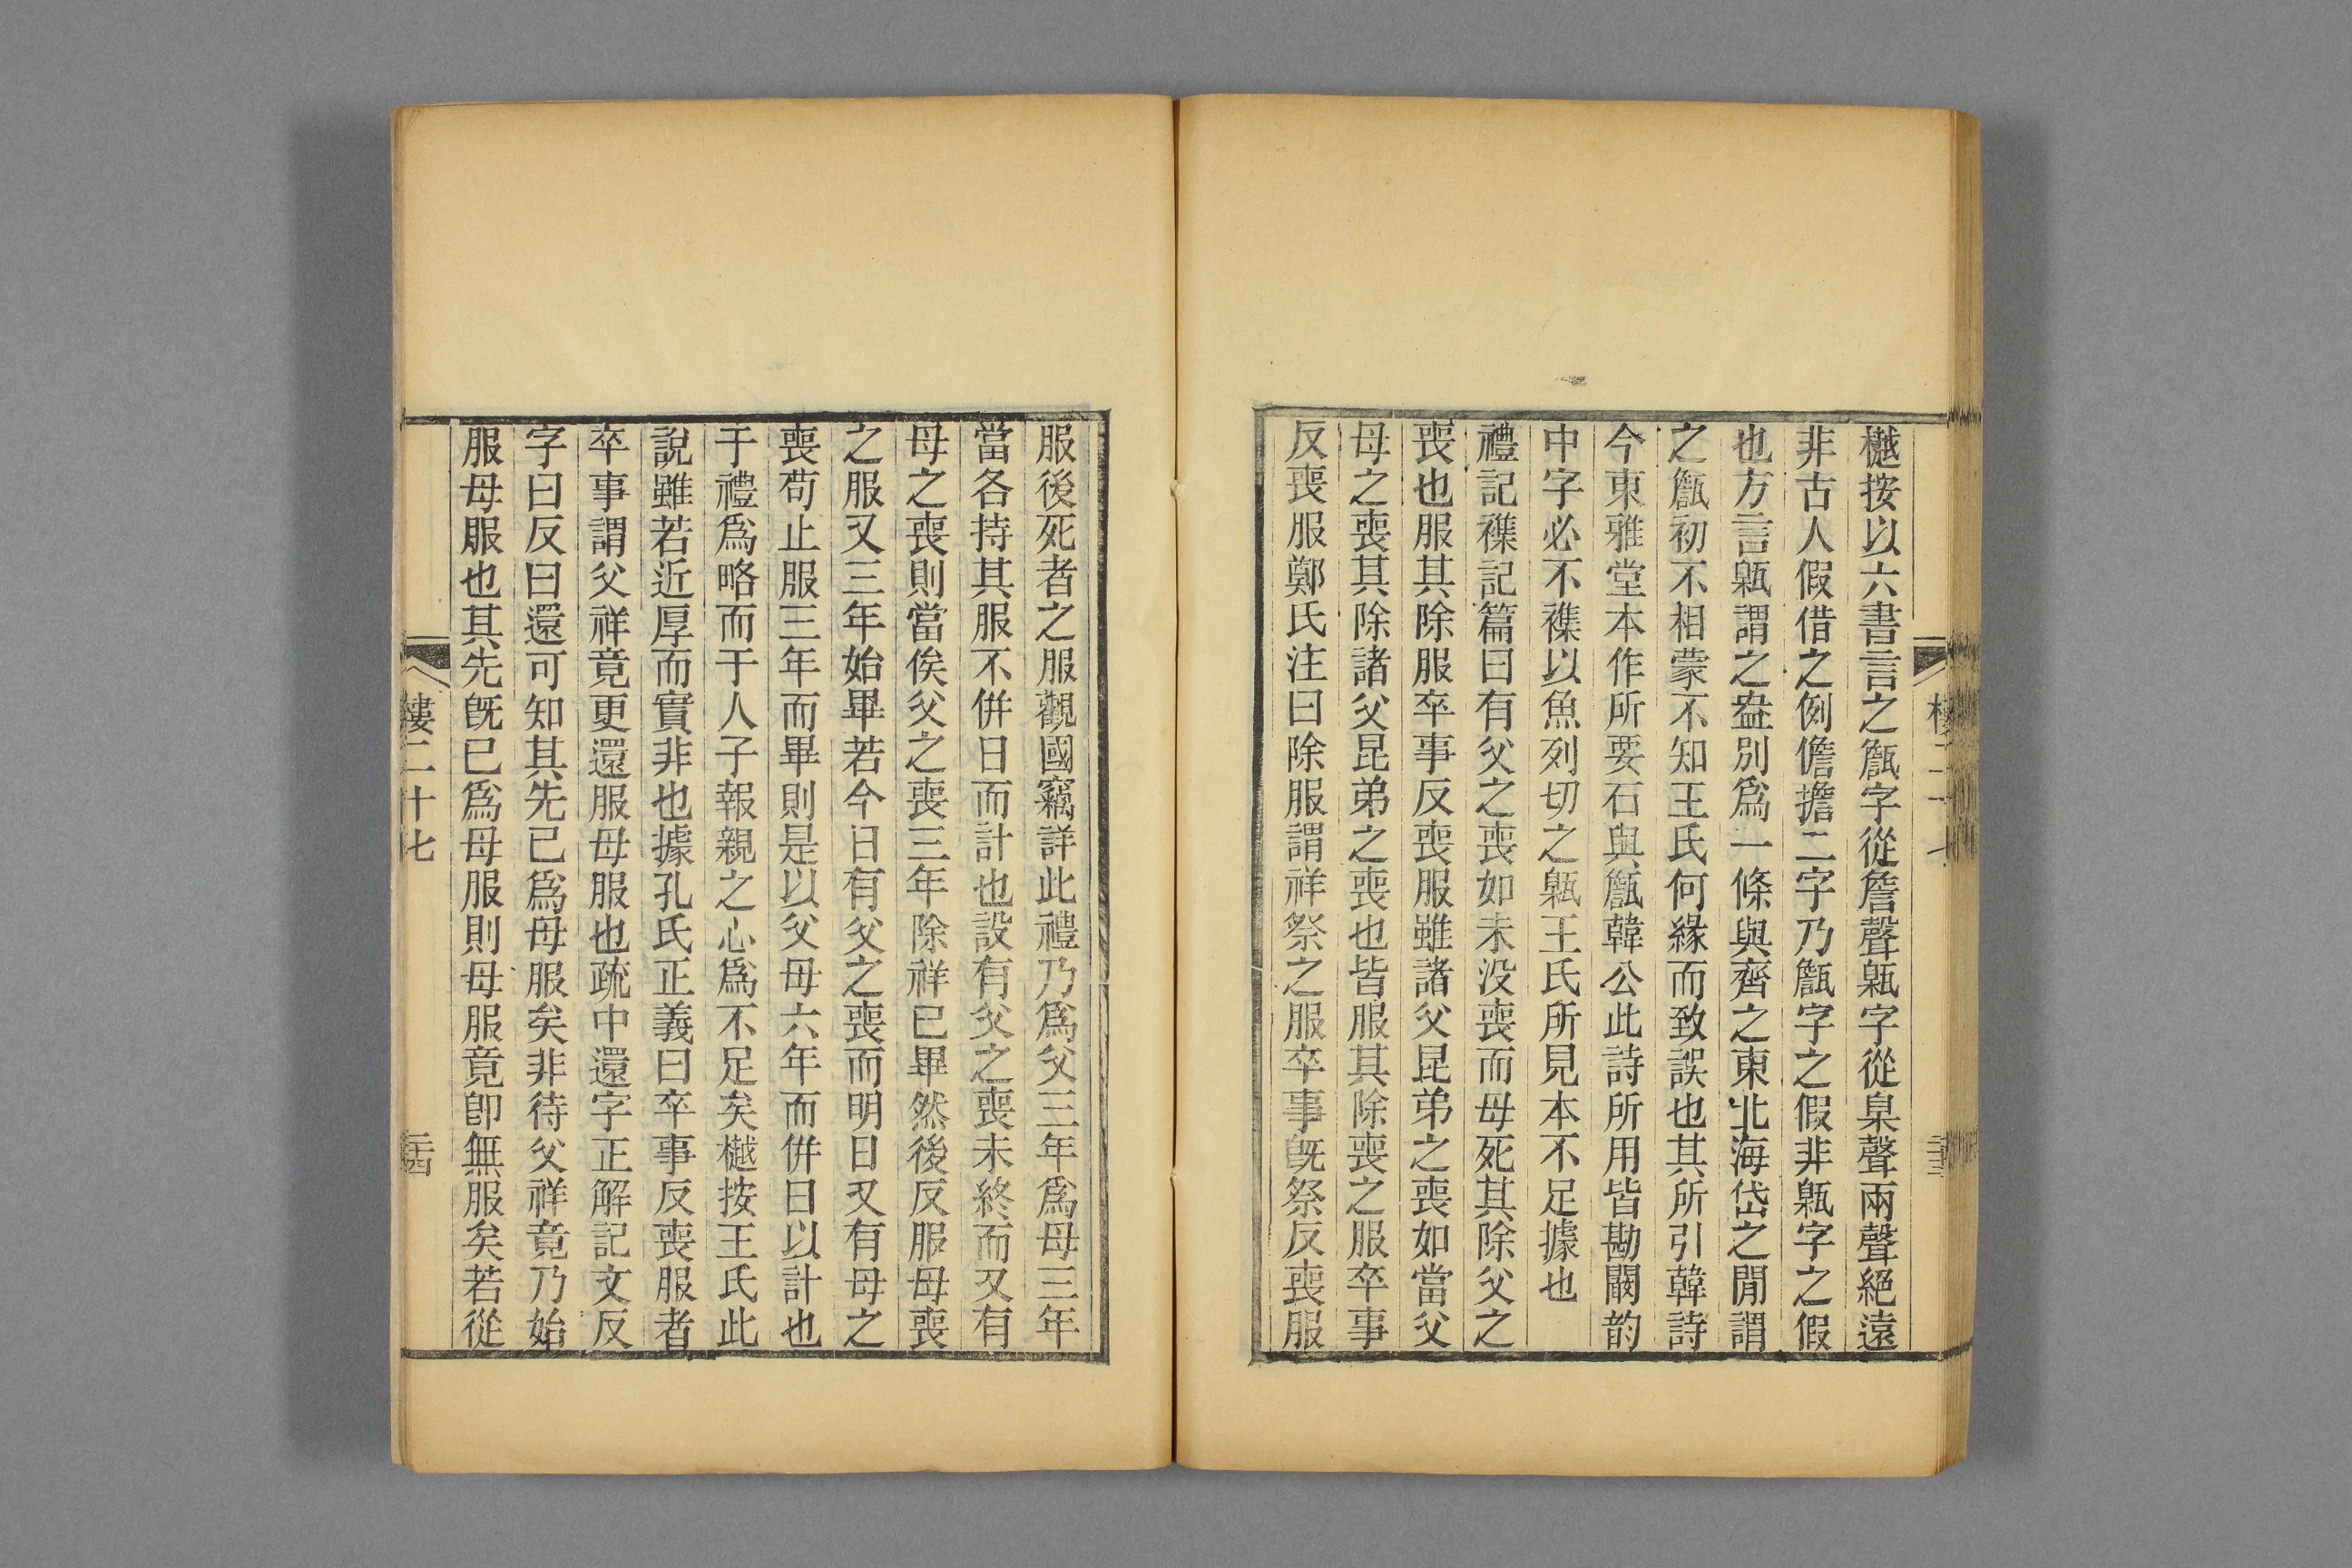 樾按以六書言之甔字從詹聲甈字從臬聲兩聲絕遠
非古人假借之例儋擔二字乃甔字之假非甈字之假
也方言甈謂之盎別爲一條與齊之東北海岱之閒謂
之甔初不相蒙不知王氏何緣而致誤也其所引韓詩
今東雅堂本作所要石與甔韓公此詩所用皆勘闞韵
中字必不襍以魚列切之甈王氏所見本不足據也
禮記襍記篇曰有父之喪如未没喪而母死其除父之
喪也服其除服卒事反喪服雖諸父昆弟之喪如當父
母之喪其除諸父昆弟之喪也皆服其除喪之服卒事
反喪服鄭氏注曰除服謂祥祭之服卒事旣祭反喪服
服後死者之服觀國竊詳此禮乃爲父三年爲母三年
當各持其服不併日而計也設有父之喪未終而又有
母之喪則當俟父之喪三年除祥已畢然後反服母喪
之服又三年始畢若今日有父之喪而明日又有母之
喪苟止服三年而畢則是以父母六年而併日以計也
于禮爲略而于人子報親之心爲不足矣樾按王氏此
說雖若近厚而實非也據孔氏正義曰卒事反喪服者
卒事謂父祥竟更還服母服也疏中還字正解記文反
字曰反曰還可知其先已爲母服矣非待父祥竟乃始
服母服也其先旣已爲母服則母服竟卽無服矣若從
樓二十七
二四